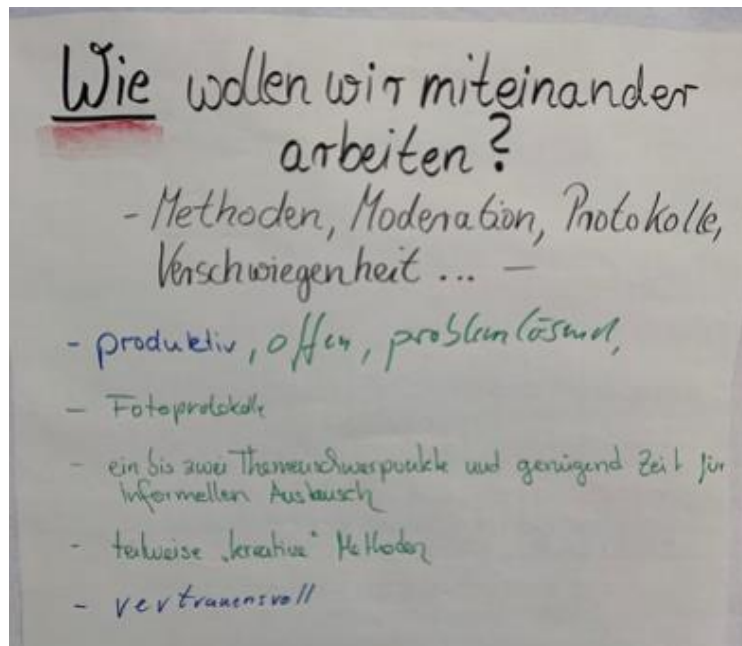 Wie wollen wir miteinander
arbeiten?
- Methoden, Moderation, Protokolle,
Verschwiegenheit ... -
- produktiv, offen, problemlösend,
- Fotoprotokolle
- ein bis zwei Themenschwerpunkte und genügend Zeit für
informellen Austausch
- teilweise „kreative“ Methoden
- vertrauensvoll